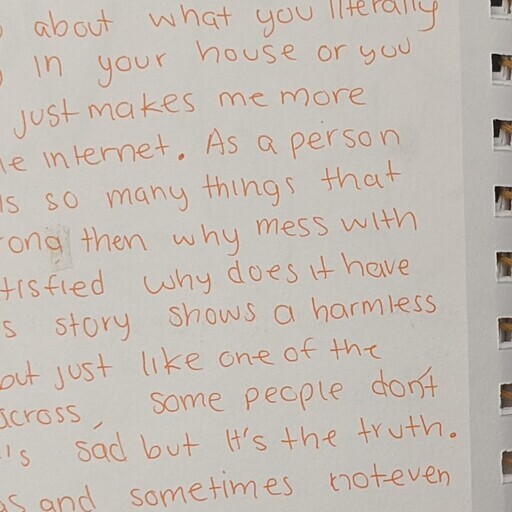 about what you literally
in your house or you
just makes me more
internet. As a person
is so many things that
then why mess with
why does it have
story shows a harmless
but just like one of the
some people don't
sad but It's the truth.
and sometimes not even